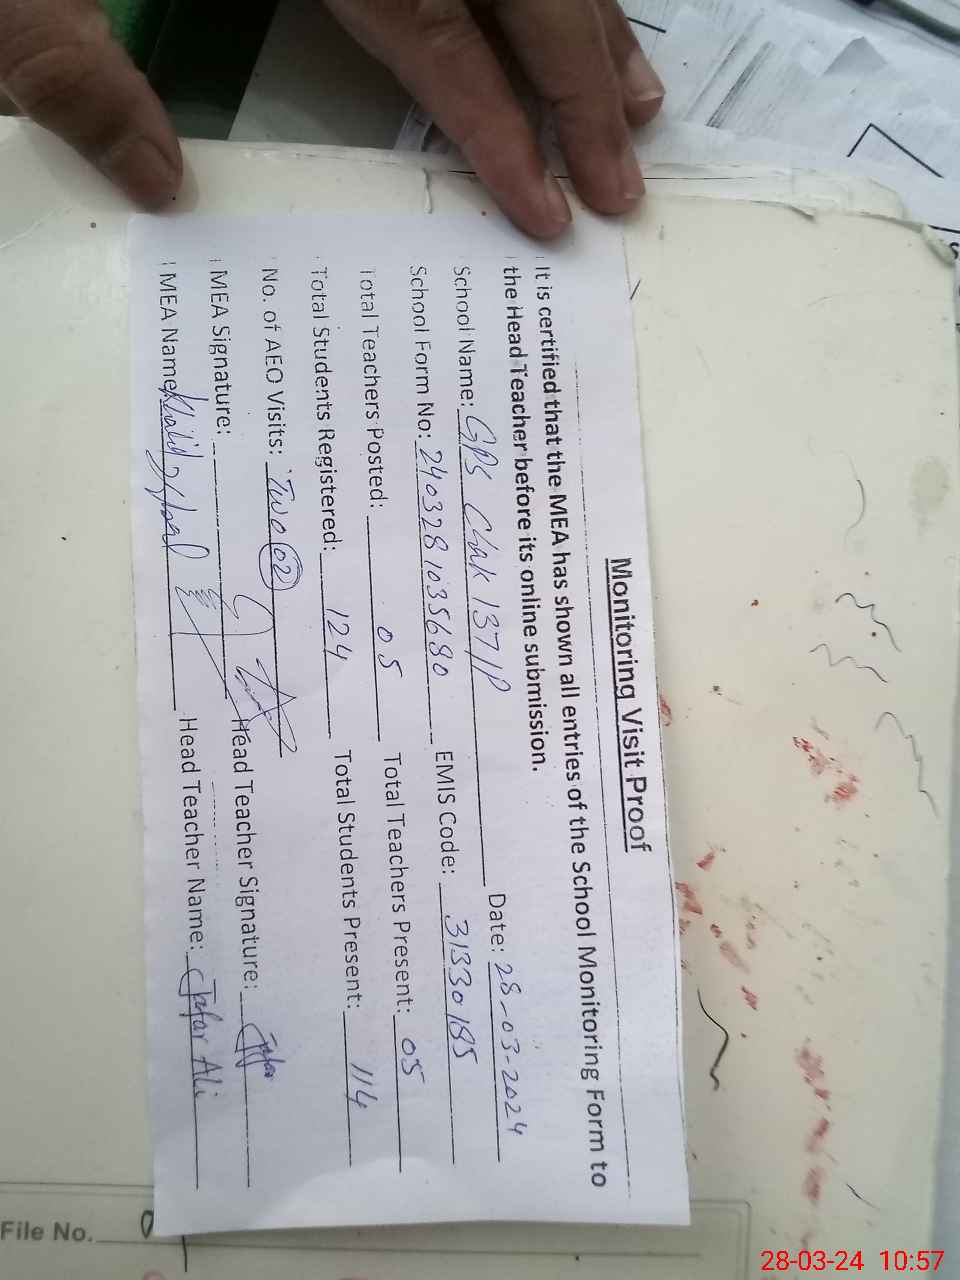 Monitoring Visit Proof
It is certified that the MEA has shown all entries of the School Monitoring Form to
the Head Teacher before its online submission.
School Name: GPS Chak 137/P Date: 28-03-2024
School Form No: 2403281035680 EMIS Code: 31330185
Total Teachers Posted: 05 Total Teachers Present: 05
Total Students Registered: 124 Total Students Present: 114
No. of AEO Visits: Two 02
MEA Signature: Head Teacher Signature:
MEA Name: Khalid Head Teacher Name: Jafar Ali
File No.
28-03-24 10:57